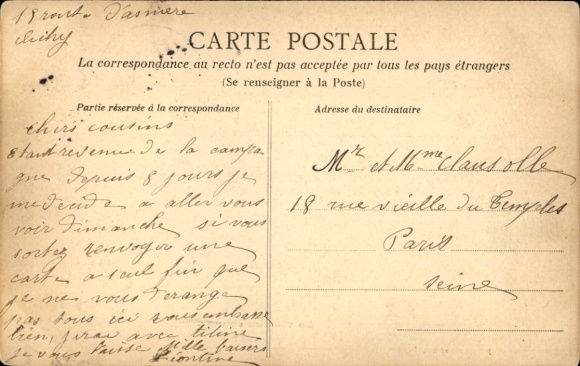 18 route d'asniere
clichy
CARTE POSTALE
La correspondance au recto n'est pas acceptée par tous les pays étrangers
(Se renseigner à la Poste)
Partie réservée à la correspondance
chers cousins
Etant revenue de la campa
gne depuis 8 jours je
me decide a aller vous
voir dimanche si vous
sortez renvoyer une
carte a seul fin que
je ne vous derange
pas tous ici vous embrasse
bien, j'irai avec titine
je vous laisse Mille baisers
Léontine
Adresse du destinataire
Mr et Mme Clausolle
18 rue vieille du Temples
Paris
Seine